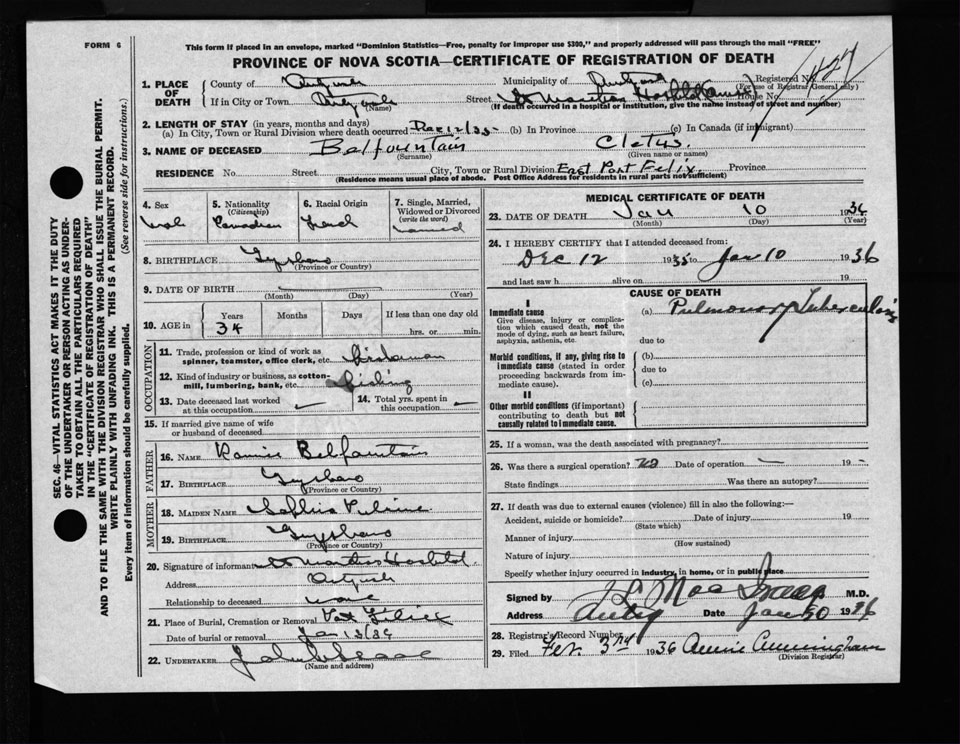 FORM 6
This form if placed in an envelope, marked "Dominion Statistics—Free, penalty for improper use $300," and properly addressed will pass through the mail "FREE"
PROVINCE OF NOVA SCOTIA—CERTIFICATE OF REGISTRATION OF DEATH
1. PLACE OF DEATH
County of
Municipality of
Registered No.
(For use of Registrar General only)
If in City or Town
(Name)
Street
House No.
(If death occurred in a hospital or institution, give the name instead of street and number)
2. LENGTH OF STAY (in years, months and days)
(a) In City, Town or Rural Division where death occurred Dec 12/35 (b) In Province (c) In Canada (if immigrant)
3. NAME OF DECEASED Belfountain Cletus.
(Surname) (Given name or names)
RESIDENCE No. Street City, Town or Rural Division East Port Felix. Province
(Residence means usual place of abode. Post Office Address for residents in rural parts not sufficient)
SEC. 46—VITAL STATISTICS ACT MAKES IT THE DUTY
OF THE UNDERTAKER OR PERSON ACTING AS UNDER-
TAKER TO OBTAIN ALL THE PARTICULARS REQUIRED
IN THE "CERTIFICATE OF REGISTRATION OF DEATH"
AND TO FILE THE SAME WITH THE DIVISION REGISTRAR WHO SHALL ISSUE THE BURIAL PERMIT.
WRITE PLAINLY WITH UNFADING INK. THIS IS A PERMANENT RECORD.
Every item of information should be carefully supplied. (See reverse side for instructions.)
4. Sex
5. Nationality (Citizenship) Canadian
6. Racial Origin French
7. Single, Married, Widowed or Divorced (write the word)
8. BIRTHPLACE
(Province or Country)
9. DATE OF BIRTH
(Month) (Day) (Year)
10. AGE in Years 34 Months Days If less than one day old
hrs. or min.
OCCUPATION
11. Trade, profession or kind of work as spinner, teamster, office clerk, etc. Fisherman
12. Kind of industry or business, as cotton-mill, lumbering, bank, etc. Fishing
13. Date deceased last worked at this occupation
14. Total yrs. spent in this occupation
15. If married give name of wife or husband of deceased
FATHER
16. NAME Belfountain
17. BIRTHPLACE
(Province or Country)
MOTHER
18. MAIDEN NAME Sophia
19. BIRTHPLACE
(Province or Country)
20. Signature of informant St Marthas Hospital
Address
Relationship to deceased none
21. Place of Burial, Cremation or Removal
Date of burial or removal
22. UNDERTAKER
(Name and address)
MEDICAL CERTIFICATE OF DEATH
23. DATE OF DEATH Jan 10 1936
(Month) (Day) (Year)
24. I HEREBY CERTIFY that I attended deceased from:
Dec 12 1935 to Jan 10 1936
and last saw h alive on 19
CAUSE OF DEATH
I
Immediate cause
Give disease, injury or complication which caused death, not the mode of dying, such as heart failure, asphyxia, asthenia, etc.
(a) Pulmonary Tuberculosis
due to
Morbid conditions, if any, giving rise to immediate cause (stated in order proceeding backwards from immediate cause).
(b)
due to
(c)
II
Other morbid conditions (if important) contributing to death but not causally related to immediate cause.
25. If a woman, was the death associated with pregnancy?
26. Was there a surgical operation? No Date of operation — 19 -
State findings Was there an autopsy?
27. If death was due to external causes (violence) fill in also the following:—
Accident, suicide or homicide? Date of injury 19
(State which)
Manner of injury
(How sustained)
Nature of injury
Specify whether injury occurred in industry, in home, or in public place
Signed by M.D.
Address Antig Date Jan 30 1936
28. Registrar's Record Number
29. Filed Feb. 3rd 1936 Annie Cunningham
(Division Registrar)